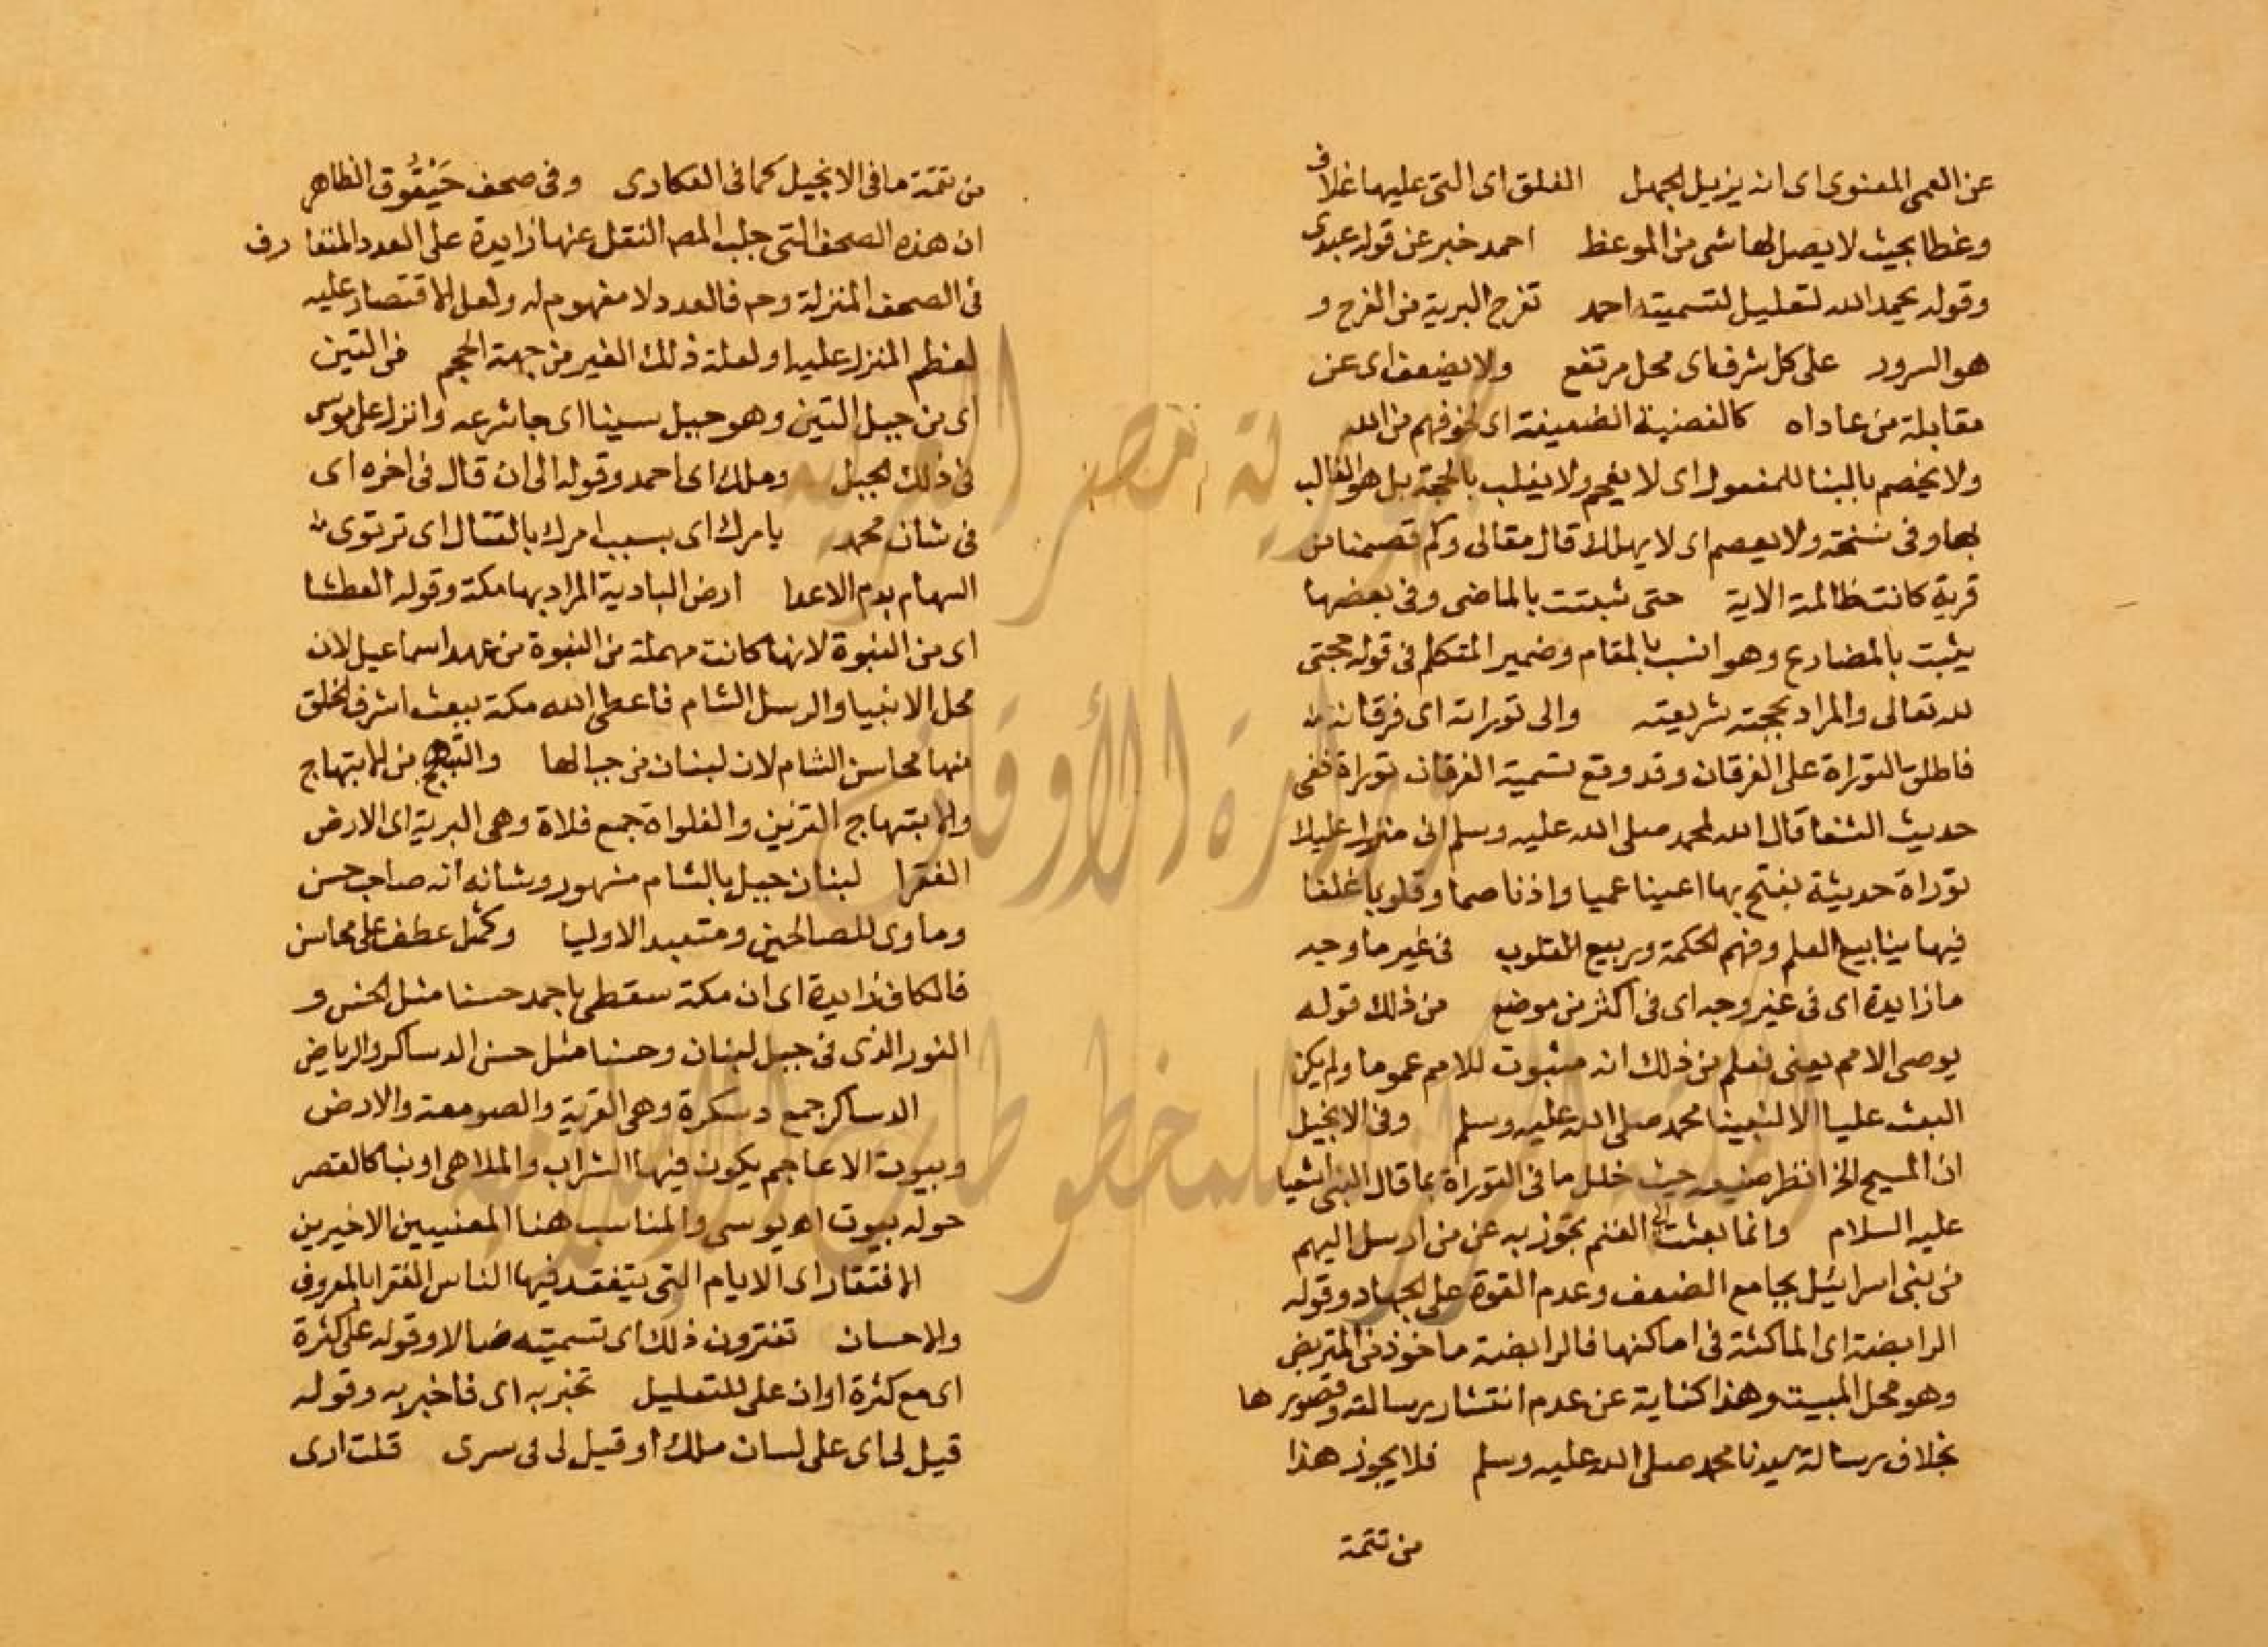 عن العمى المعنوى اى انه يزيل الجهل الغلق اى التى عليها غلاف
وغطا بحيث لا يصل لها شى من الموعظ احمد خبر عن قوله عبدى
وقوله يحمد الله لتعليل لتسميته احمد تفرح البرية من الفرح و
هو السرور على كل شرف اى محل مرتفع ولا يضعف اى عن
مقابلة من عاداه كالقصبة الضعيفة اى لخوفهم من الله
ولا يخصم بالبنا للمفعول اى لا يفحم ولا يغلب بالحجة بل هو الغالب
بها وفى نسخة ولا يعصم اى لا يهلك قال مقالى وكم قصمنا من
قرية كانت ظالمة الاية حتى ثبتت بالماضى وفى بعضها
يثبت بالمضارع وهو انسب بالمقام وضمير المتكلم فى قوله حجتى
لله تعالى والمراد بحجته شريعته والى توراته اى فرقانه
فاطلق التوراة على الفرقان وقد وقع تسمية الفرقان توراة ففى
حديث الشفا قال الله لمحمد صلى الله عليه وسلم انى منزل عليك
توراة حديثة بفتح بها اعينا عميا واذنا صما وقلوبا غلفا
فيها ينابيع العلم وفهم الحكمة وربيع القلوب فى غير ما وجه
ما زايدة اى فى غير وجه اى فى اكثر من موضع من ذلك قوله
يوصى الامم يعنى نعلم من ذلك انه مبثوت للامم عموما ولم يكن
البعث عليا الا لنبينا محمد صلى الله عليه وسلم وفى الانجيل
ان المسيح الخ انظر صنيعه حيث خلل ما فى التوراة بما قال النبى اشعيا
عليه السلام وانما بعثت الخ الغنم تجوز به عن من ارسل اليهم
من بنى اسرائيل بجامع الضعف وعدم القوة على الجهاد وقوله
الرابضة اى الماكثة فى اماكنها فالرابضة ماخوذ من المتربض
وهو محل المبيت وهذا كناية عن عدم انتشار رسالته وقصورها
بخلاف رسالة سيدنا محمد صلى الله عليه وسلم فلا يجوز هذا
من تتمة
من تتمة ما فى الانجيل كما فى العكارى وفى صحف حَيْقُوق الظاهر
ان هذه الصحف التى جلب المص النقل عنها زايدة على العدد المتعارف
فى الصحف المنزلة وح فالعدد لا مفهوم له ولعل الاقتصار عليه
لعظم المنزل عليه او لعلة ذلك الغير من جهة الحجم من التين
اى من جبل التين وهو جبل سينا اى جا شرعه وانزل على موسى
فى ذلك الجبل وملك اى احمد وقوله الى ان قال فى اخره اى
فى شان محمد يا مرك اى بسبب امرك بالقتال اى ترتوى
السهام بدم الاعدا ارض البادية المراد بها مكة وقوله العطشا
اى من النبوة لانها كانت مهملة من النبوة من عهد اسماعيل لان
محل الانبيا والرسل الشام فاعطى الله مكة ببعث اشرف الخلق
منها محاسن الشام لان لبنان من جبالها والتبهج من الابتهاج
والابتهاج التزين والفلواة جمع فلاة وهى البرية اى الارض
الفقرا لبنان جبل بالشام مشهور وشانه انه صاحب حسن
وماوى للصالحين ومتعبد الاوليا وكمثل عطف على محاسن
فالكاف زايدة اى ان مكة ستعطى باحمد حسنا مثل الحسن و
النور الذى فى جبل لبنان وحسنا مثل حسن الدساكر والرياض
الدساكر جمع دسكرة وهى القرية والصومعة والارض
وبيوت الاعاجم يكون فيها الشراب والملاهى او بنا كالقصر
حوله بيوت اه يوسى والمناسب هنا المعنيين الاخيرين
الافتقاد اى الايام التى يتفقد فيها الناس الفقرا بالمعروف
والاحسان تفترون ذلك اى تسميته ضالا وقوله على كثرة
اى مع كثرة او ان على للتعليل تخبر به اى فاخبر به وقوله
قيل لى اى على لسان ملك او قيل لى فى سرى قلت ارى
جمهورية مصر العربية
وزارة الأوقاف
المكتبة المركزية للمخطوطات الإسلامية